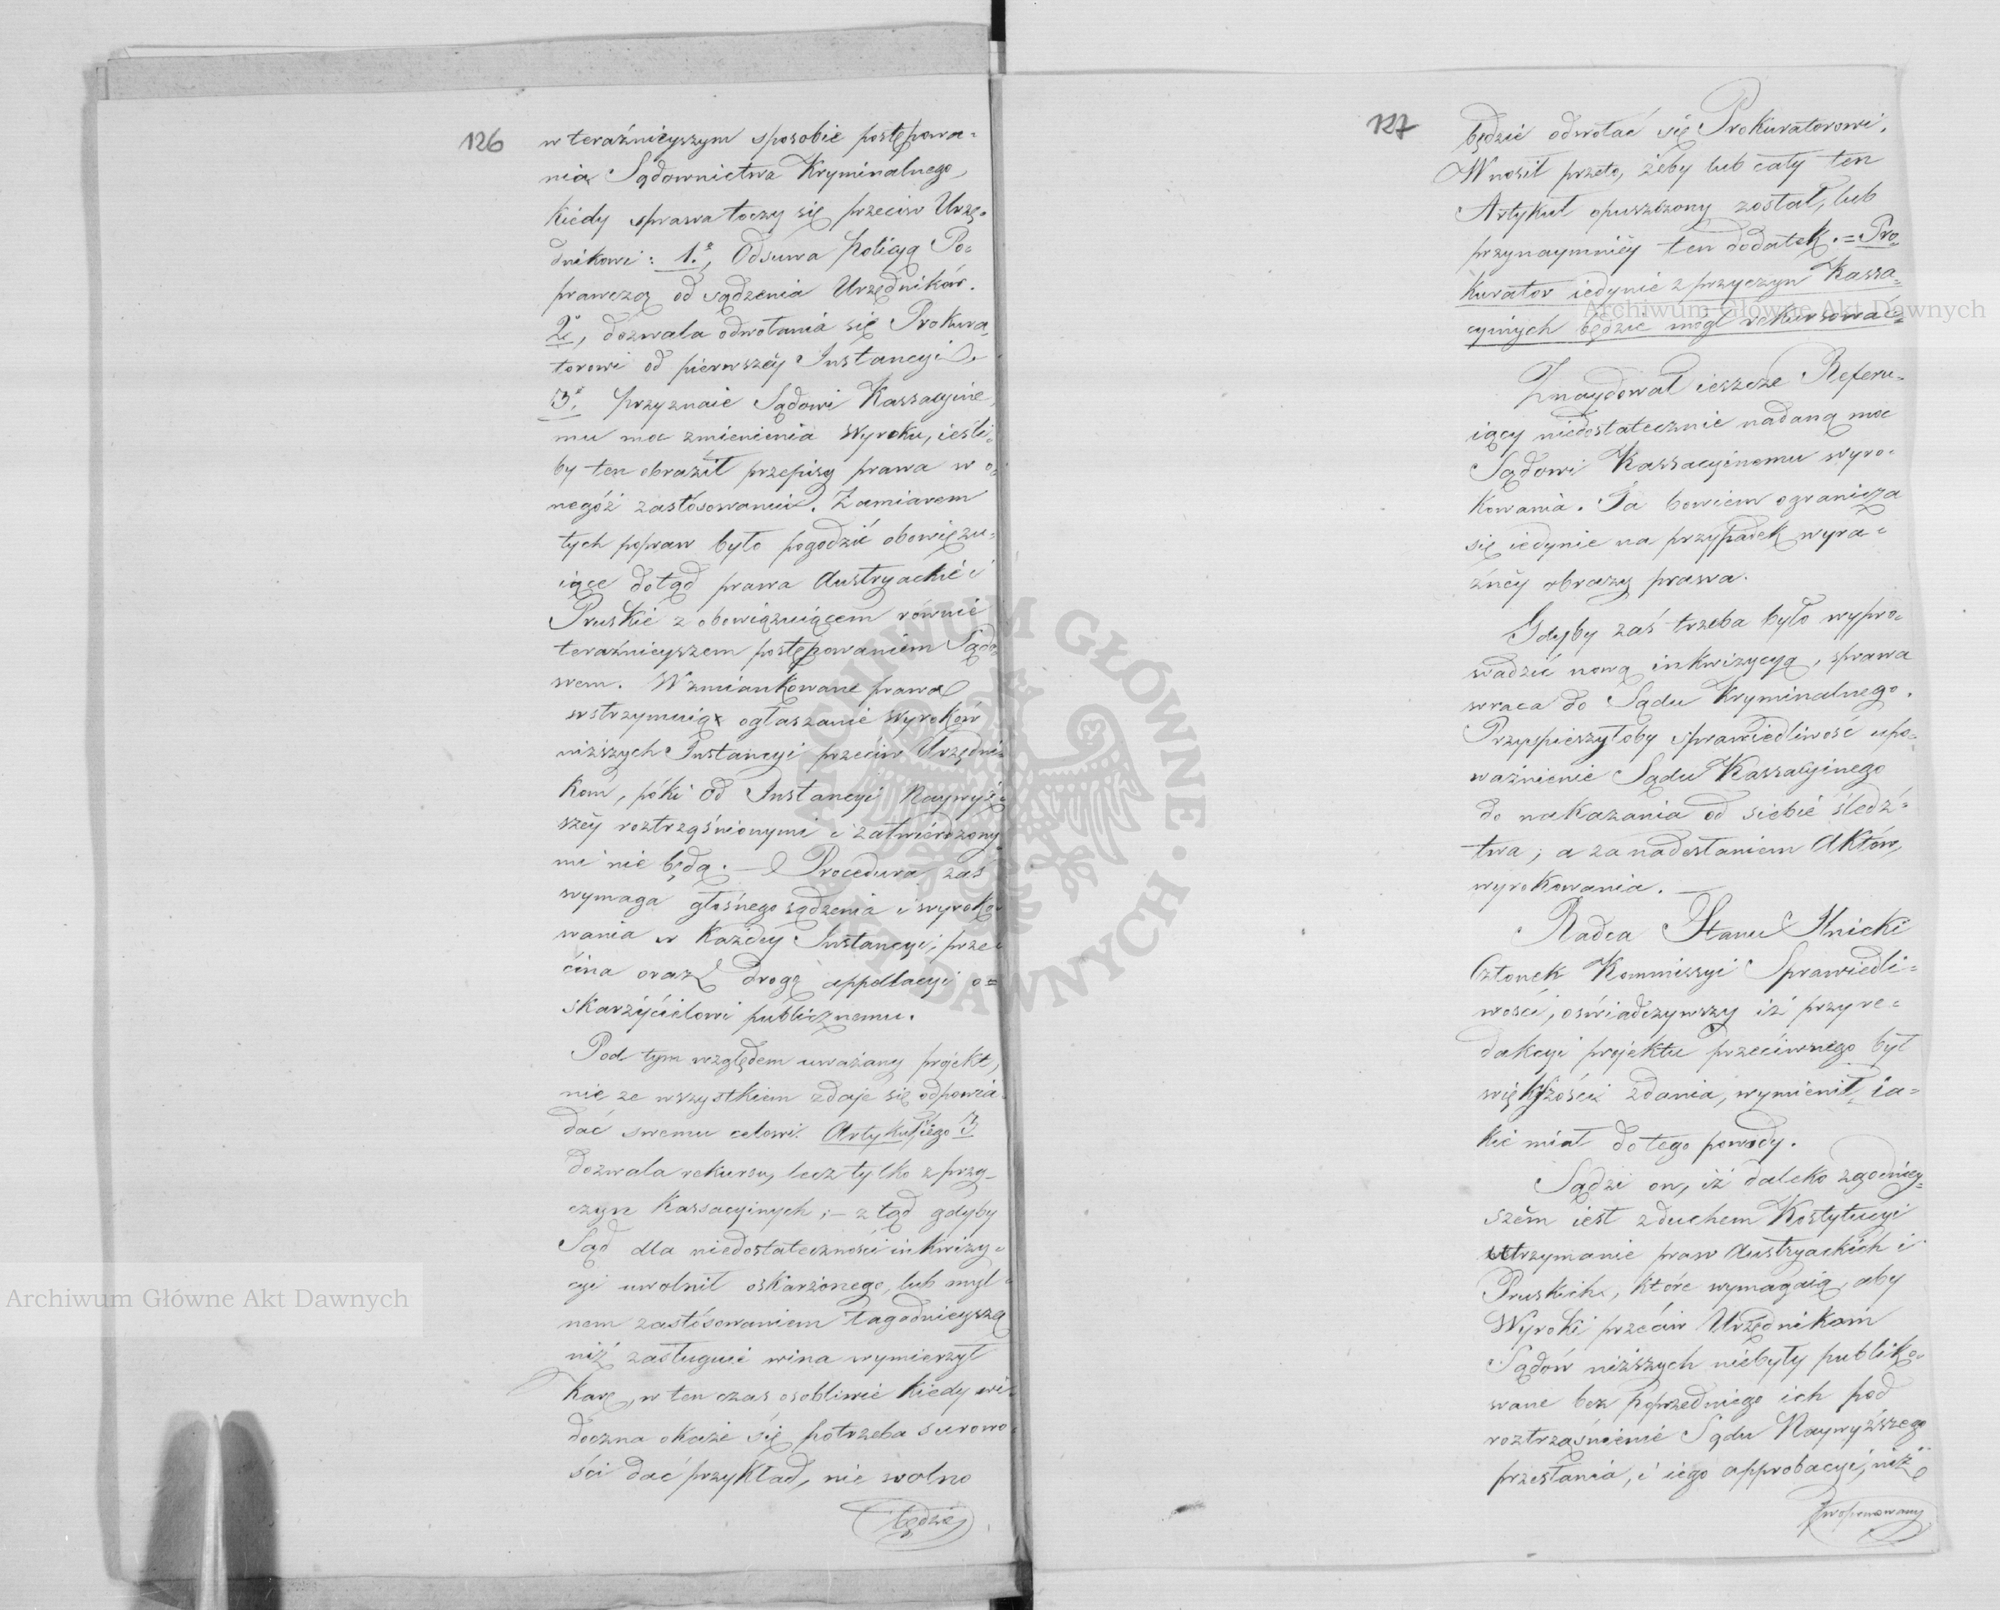 126
w teraźnieyszym sposobie postępowa-
nia Sądownictwa Kryminalnego,
kiedy sprawa toczy się przeciw Urzę-
dnikowi: 1.º, Odsuwa Policyą Po-
prawczą od sądzenia Urzędników.
2º, dozwala odwołania się Prokura-
torowi od pierwszéy Instancyi.
3º. przyznaie Sądowi Kassacyine-
mu moc zmienienia Wyroku, ieśli-
by ten obraził przepisy prawa w o-
negóż zastósowaniu. Zamiarem
tych popraw było pogodzić obowiązu-
iące dotąd prawa Austryackie i
Pruskie z obowiązuiącem równie
teraźnieyszem postępowaniem Sądo-
wem. Wzmiankowane prawa
wstrzymuią ogłaszanie Wyroków
niższych Instancyi przeciw Urzędni-
kom, póki od Instancyi Naywyż-
széy roztrząśnionymi i zatwierdzony-
mi nie będą. — Procedura zaś
wymaga głośnego sądzenia i wyroko-
wania w każdéy Instancyi; prze-
cina oraz drogę appellacyi o-
skarżycielowi publicznemu.
Pod tym względem uważany projekt,
nie ze wszystkiem zdaje się odpowia-
dać swemu celowi. Artykuł jego 3
dozwala rekursu, lecz tylko z przy-
czyn Kassacyinych; — z tąd gdyby
Sąd dla niedostateczności inkwizy-
cyi uwolnił oskarżonego, lub myl-
nem zastósowaniem łagodnieyszą
niż zasługuie wina wymierzył
karę, w ten czas osobliwie kiedy wi-
doczna okaże się potrzeba surowo-
ści dać przykład, nie wolno
będzie
127
będzie odwołać się Prokuratorowi.
Wnosił przeto, żeby lub cały ten
Artykuł opuszczony został, lub
przynaymniéy ten dodatek. = Pro-
kurator iedynie z przyczyn Kassa-
cyinych będzie mógł rekursować =
Znaydował ieszcze Referu-
iący niedostatecznie nadaną moc
Sądowi Kassacyinemu wyro-
kowania. Ta bowiem ogranicza
się iedynie na przypadek wyra-
źnéy obrazy prawa.
Gdyby zaś trzeba było wypro-
wadzić nową inkwizycyą, sprawa
wraca do Sądu Kryminalnego.
Przyspieszyłoby sprawiedliwość upo-
ważnienie Sądu Kassacyinego
do nakazania od siebie śledz-
twa; a za nadesłaniem Aktów,
wyrokowania. —
Radca Stanu Ilnicki
Członek Kommissyi Sprawiedli-
wości, oświadczywszy iż przy re-
dakcyi projektu przeciwnego był
większości zdania, wymienił ia-
kie miał do tego powody.
Sądzi on, iż daleko zgodniey-
szém iest z duchem Kostytucyi
utrzymanie praw Austryackich i
Pruskich, które wymagaią, aby
Wyroki przeciw Urzędnikom
Sądów niższych niebyły publiko-
wane bez poprzedniego ich pod
roztrząśnienie Sądu Naywyższego
przesłania, i iego approbacyi, niż
proponowany
Archiwum Główne Akt Dawnych
Archiwum Główne Akt Dawnych
ARCHIWUM GŁÓWNE AKT DAWNYCH